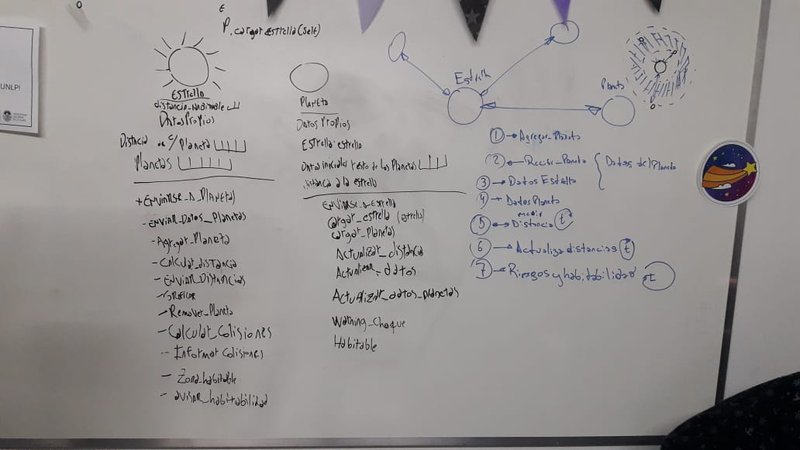 E
P.cargar_estrella(self)
UNLP!
ESTRELLA
distancia_habitable
Datos Propios
Distacia de c/ Planeta
Planetas
+ Enviarse_a_Planeta)
- Enviar_Datos_Planetas
- Agregar_Planeta
- Calcular_distancia
- Enviar_Distancias
- Graficar
- Remover_Planeta
- Calcular_Colisiones
- Informar Colisiones
- Zona_habitable
- avisar_habitabilidad
Planeta
Datos Propios
Estrella: estrella
Datos iniciales resto de los Planetas
distancia a la estrella
Enviarse_a_Estrella
Cargar_estrella (estrella)
Cargar_Planetas
Actualizar_distancia
Actualizar_datos
Actualizar_datos_planetas
Warning_Choque
Habitable
Estrella
Planeta
1 → Agregar_Planeta
2 Recibir_Planeta
Datos del Planeta
3 → Datos Estrella
4 → Datos Planeta
5 → medir Distancia t
6 → Actualiza distancias t
7 → Riesgos y habitabilidad t